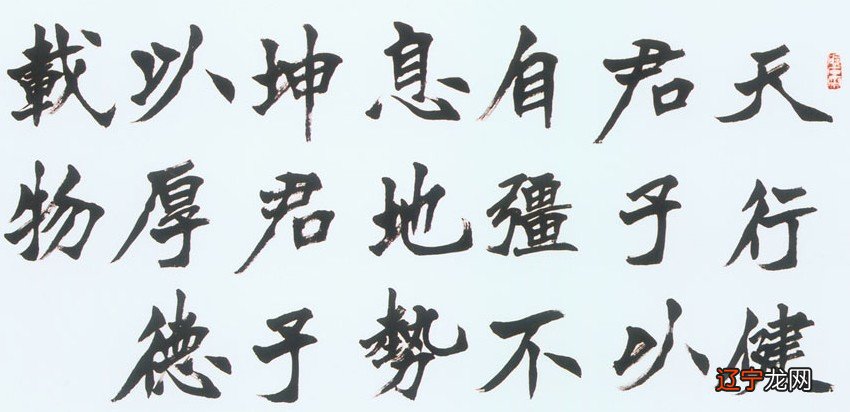 天行健
君子以
自彊不
息地勢
坤君子
以厚德
載物
辽宁龙网